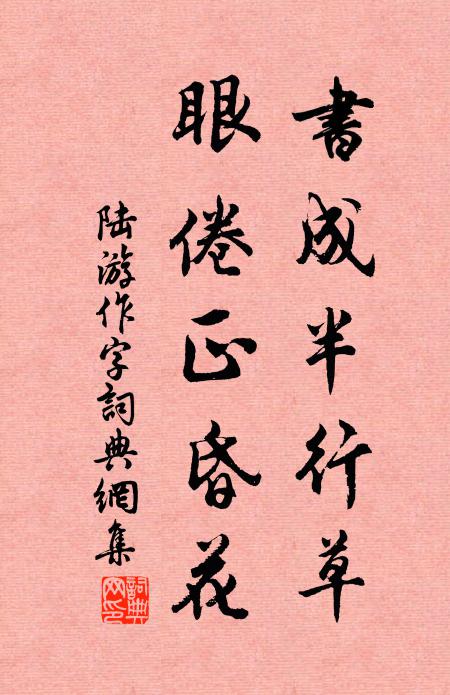 書成半行草
眼倦正昏花
陆游作字詞典網集
詞典网印